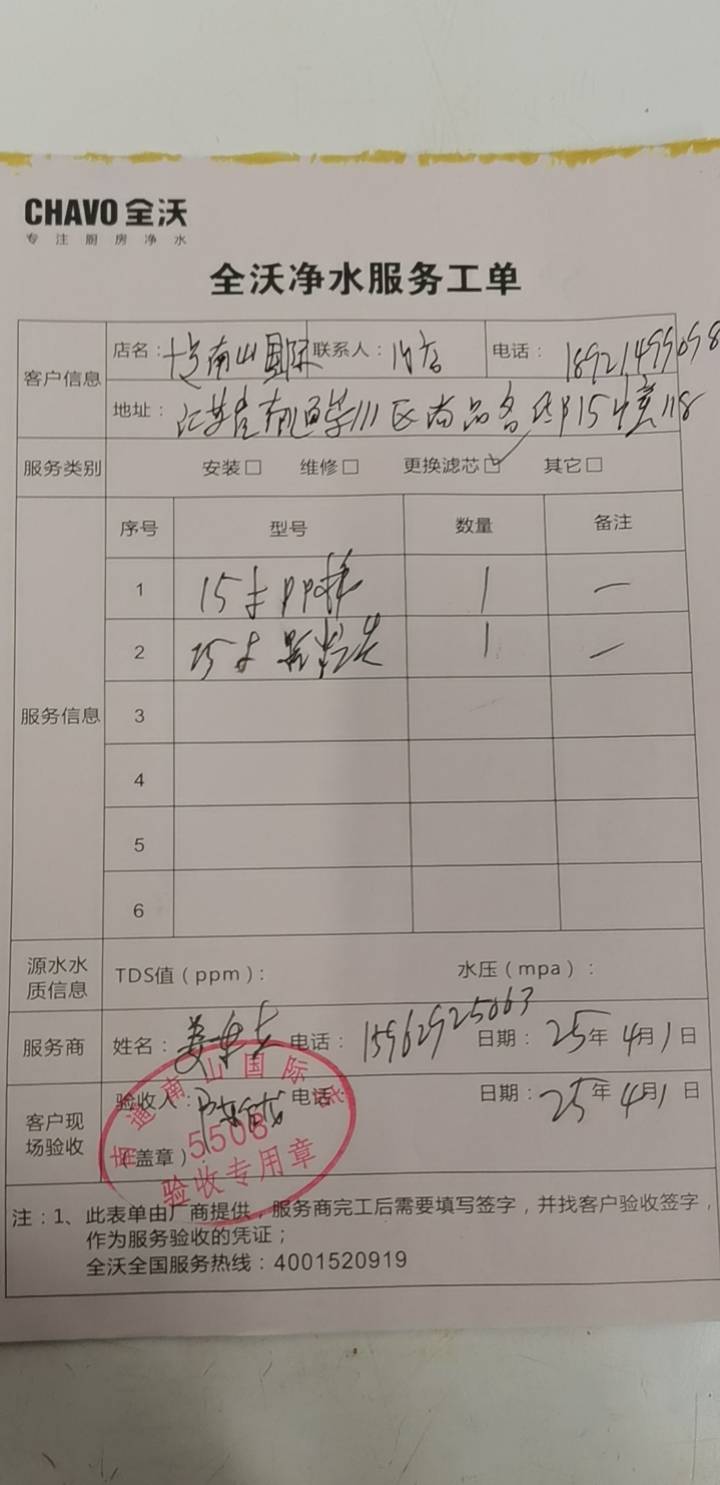 CHAVO 全沃
专注厨房净水
全沃净水服务工单
客户信息
店名： 南山国际 联系人： 电话：
地址： 江苏省南通崇川区尚品名邸15幢118
服务类别 安装□ 维修□ 更换滤芯☑ 其它□
服务信息
序号 型号 数量 备注
1 15寸PP棉 1 —
2 15寸 1 —
3
4
5
6
源水水质信息 TDS值（ppm）： 水压（mpa）：
服务商 姓名： 姜 电话： 15962925063 日期： 25年4月1日
客户现场验收 验收人： 电话 日期： 25年4月1日
（盖章）
南通南山国际
5508
验收专用章
注：1、此表单由厂商提供，服务商完工后需要填写签字，并找客户验收签字，
作为服务验收的凭证；
全沃全国服务热线：4001520919